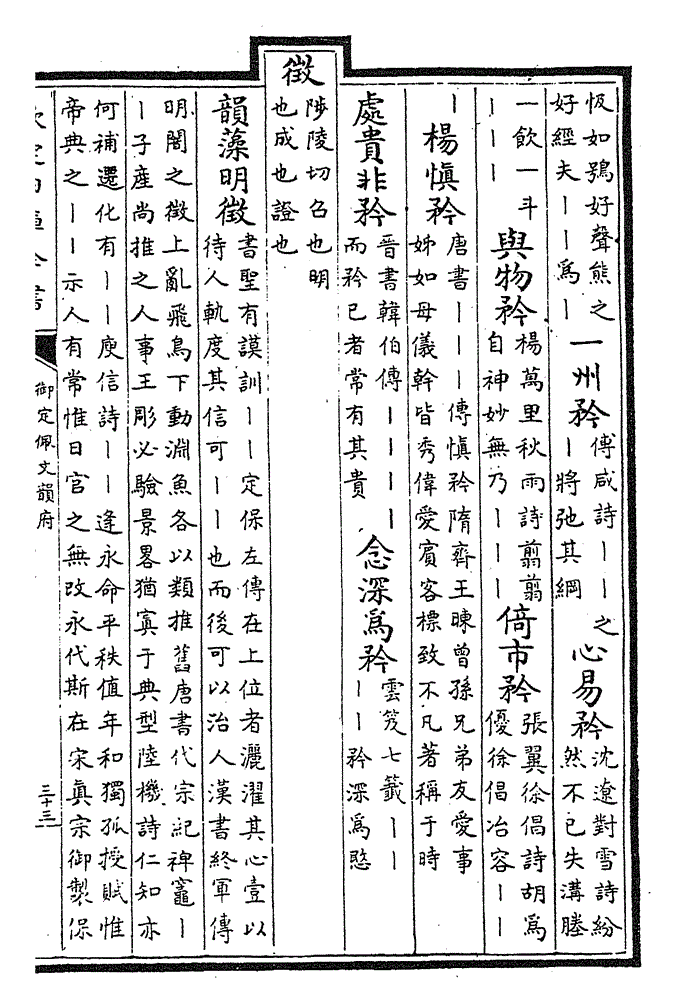 如鴞好聲熊之
好經夫丨丨爲丨
一州矜
傅咸詩丨丨之
丨將弛其綱
心易矜
沈遼對雪詩紛
然不已失溝塍
一飲一斗
丨丨丨
與物矜
楊萬里秋雨詩翦翦
自神妙無乃丨丨丨
倚市矜
張翼徐倡詩胡爲
優徐倡冶容丨丨
丨
楊愼矜
唐書丨丨丨傳愼矜隋齊王暕曾孫兄弟友愛事
姊如母儀幹皆秀偉愛賔客標致不凡著稱于時
處貴非矜
晉書韓伯傳丨丨丨丨
而矜已者常有其貴
念深爲矜
雲笈七籤丨丨
丨丨矜深爲愍
徵
陟陵切召也明
也成也證也
韻藻明徵
書聖有謨訓丨丨定保左傳在上位者灑濯其心壹以
待人軌度其信可丨丨也而後可以治人漢書終軍傳
明闇之徵上亂飛鳥下動淵魚各以類推舊唐書代宗紀裨竈丨
丨子產尚推之人事王彤必驗景畧猶寘于典型陸機詩仁知亦
何補遷化有丨丨庾信詩丨丨逢永命平秩值年和獨孤授賦惟
帝典之丨丨示人有常惟日官之無改永代斯在宋眞宗御製保
欽定四庫全書
御定佩文韻府
三十三